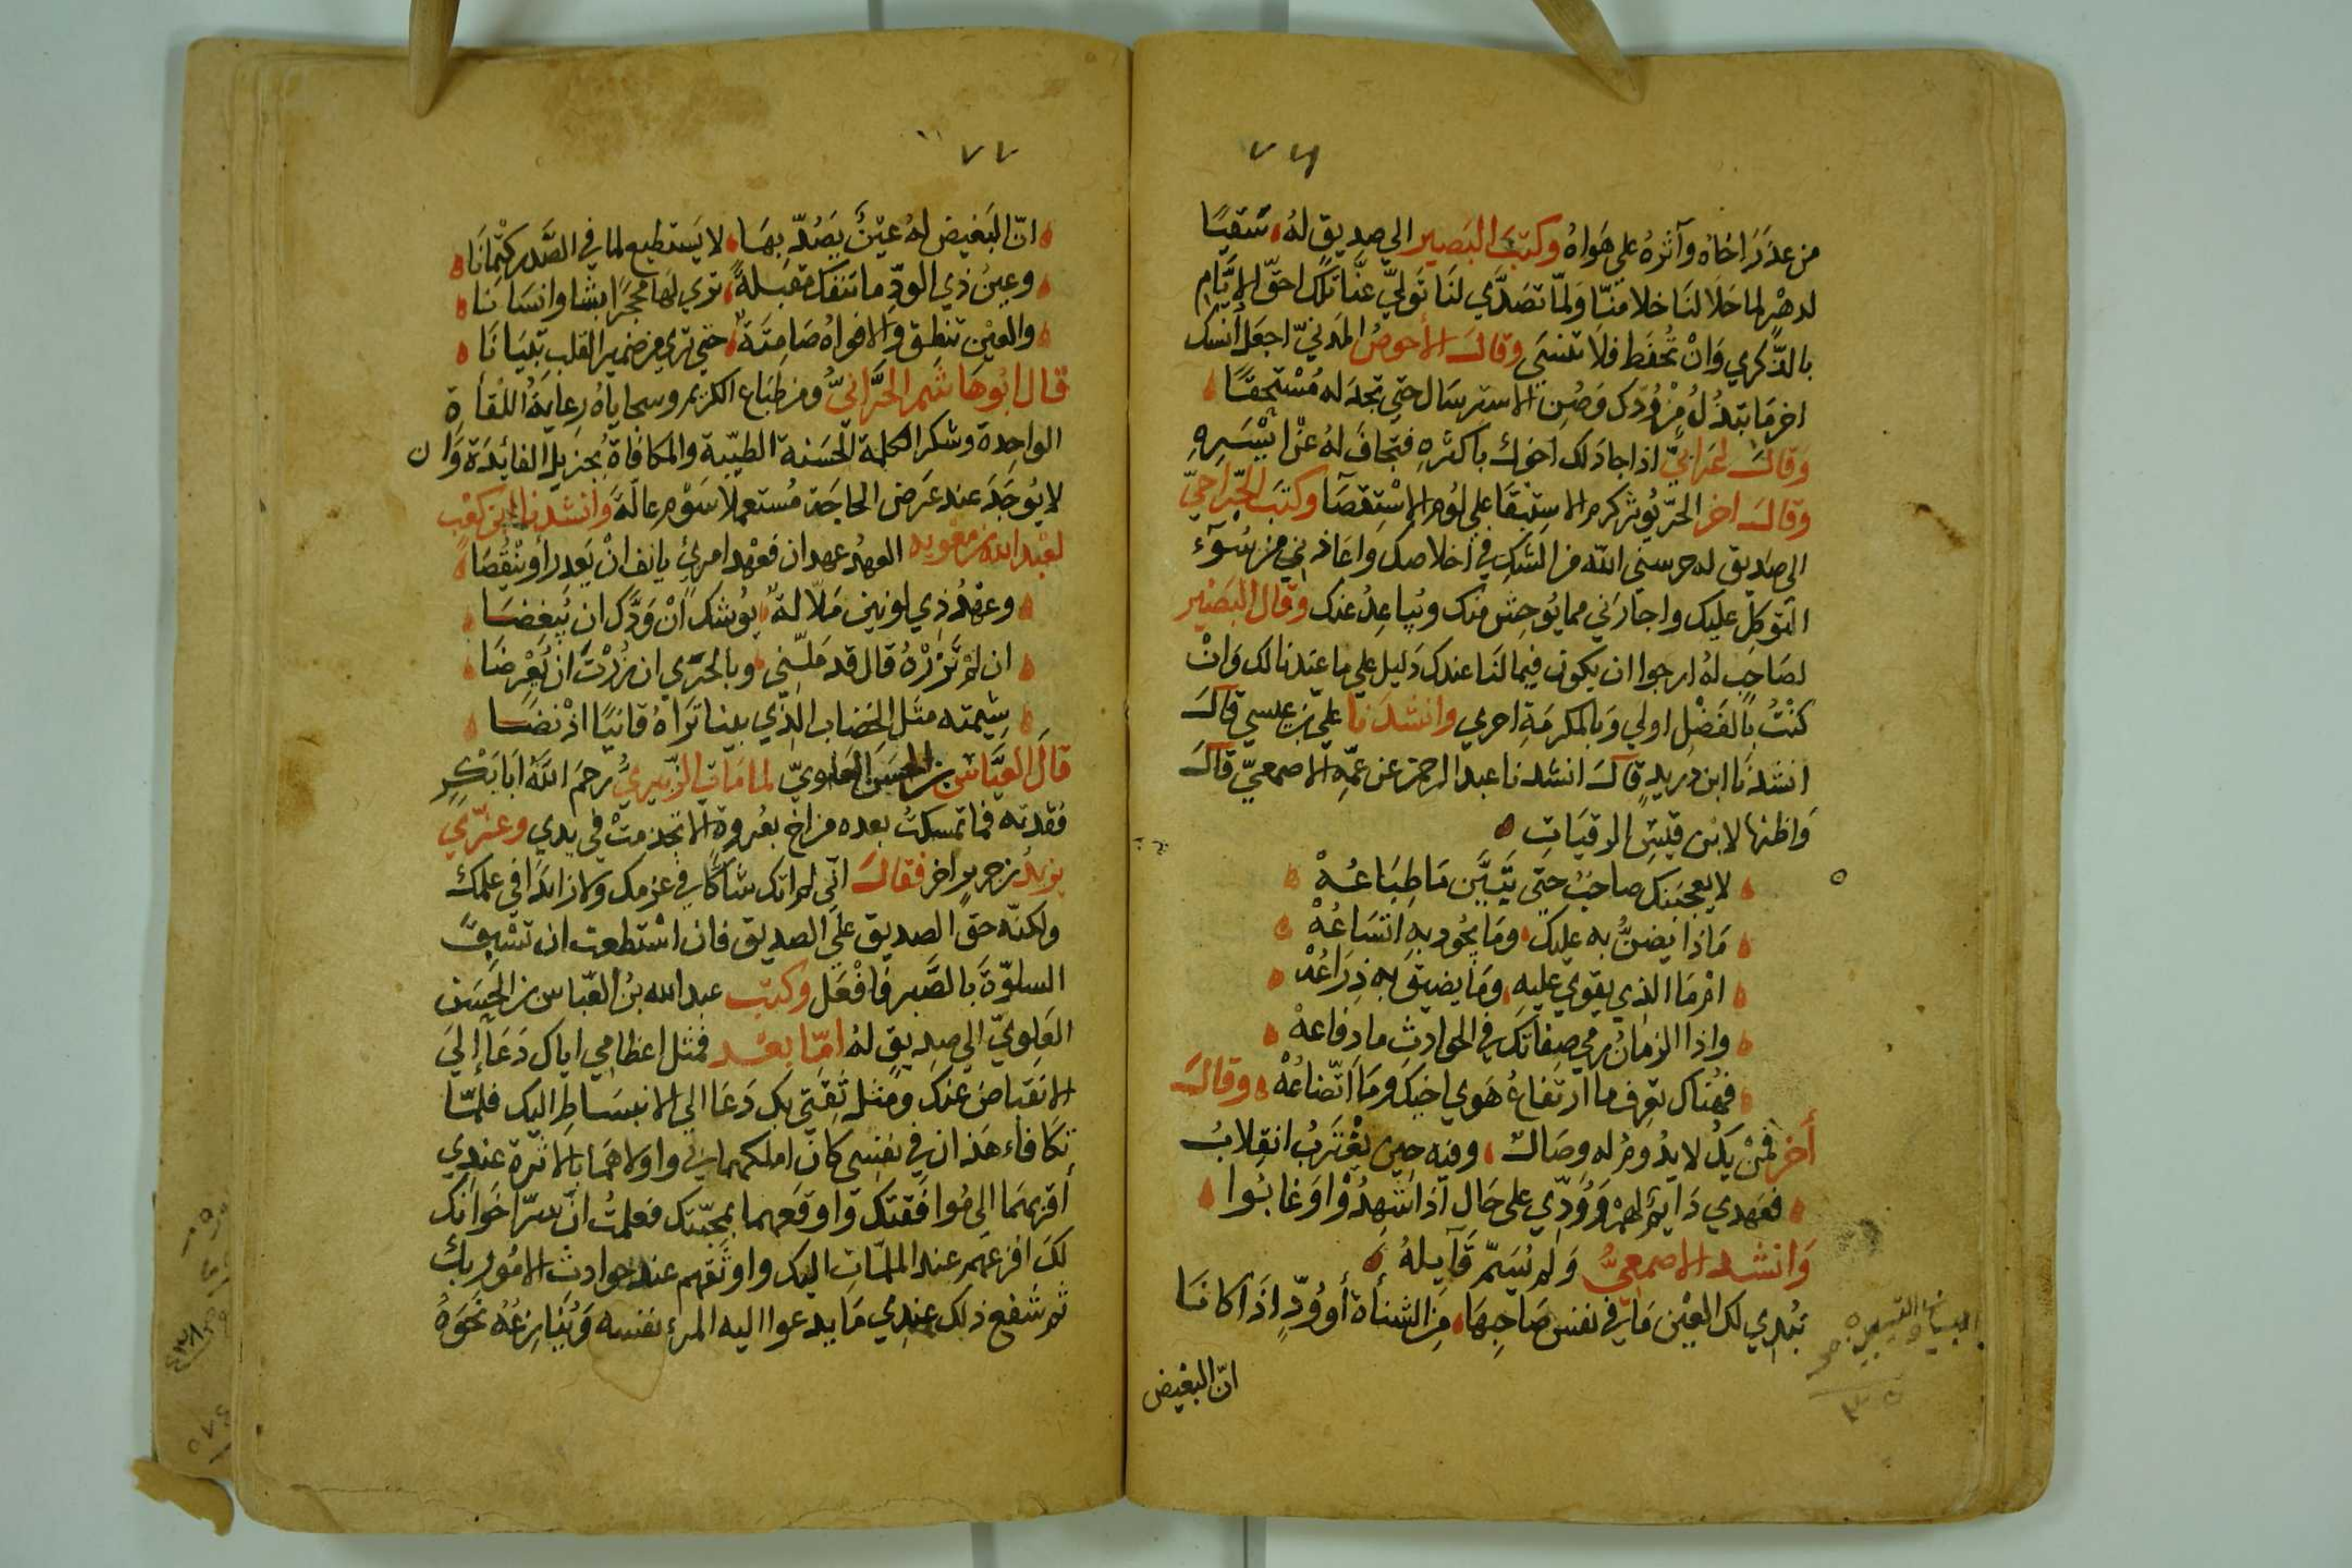 ٧٦
من عذر اخاه وآثره على هواه وكتب البصير الي صديق له، سقيًا
لدهر لما خلا لنا خلا منّا ولمّا تصدّي لنا تولّي عنّا تلك احقّ الايّام
بالذّكري وان تحفظ فلا تنسى وقال الأحوص المدنيّ اجعل أنسك
اخر ما تبذل من ودّك وصن الاسترسال حتى تجد له مستحقًا
وقال اعرابيّ اذا جاد لك اخوك باكثره فتجاف له عن ايسره
وقال اخر الحرّ يؤثر كرم الاستبقا على لؤم الاستقصا وكتب الجرّاحيّ
الى صديق له حرسني الله من الشك في اخلاصك واعاذني من سوء
التوكل عليك واجارني مما يوحش منك ويباعد عنك وقال البصير
لصاحب له ارجوا ان يكون فيما لنا عندك دليل علي ما عندنا لك وان
كنت بالفضل اولي وبالمكرمة احري وانشدنا علي بن عيسي قال
انشدنا ابن دريد قال انشدنا عبد الرحمن عن عمّه الاصمعيّ قال
واظنها لابن قيس الرقيات
لا يعجبنك صاحب حتى يتبيّن ما طباعه
ماذا يضنّ به عليك، وما يجود به اتساعه
اثر ما الذي يقوي عليه، وما يضيق به ذراعه
واذا الزمان رمى صفاتك في الحوادث ما دفاعه
فهناك تعرف ما ارتفاع هوي اخيك وما اتّضاعه وقال
أخر فمن يك لا يدوم له وصال، وفيه حين يغترب انقلاب
فعهدي دايم لهم وودّي على حال اذا شهدوا او غابوا
وانشد الاصمعيّ ولم يسمّ قايله
تبدي لك العين ما في نفس صاحبها، من الشنأة أو ودّ اذا كانا
انّ البغيض
٧٧
انّ البغيض له عين يصدّ بها، لا يستطيع لما في الصّدر كتمانا
وعين ذي الودّ ما تنفك مقبلة، تري لها محجرًا بشا وانسانا
والعين تنطق والافواه صامتة، حتى تري من ضمير القلب تبيانا
قال ابو هاشم الحرّانيّ ومن طباع الكريم وسجاياه رعاية اللقاة
الواحدة وشكر الكلمة الحسنة الطيّبة والمكافاة بجزيل الفائدة وان
لا يوجد عند عرض الحاجة مستعملا سوم عالّة وانشدنا ابن كعب
لعبد الله بن معوية العهد عهدان فعهد امرئ يانف ان يغدر أو ينقضا
وعهد ذي لونين ملّالة، يوشك ان ودّك ان يبغضا
ان لم تزره قال قد ملّني، وبالحري ان زرت ان يعرضا
شيمته مثل الخضاب الذي بينا تراه قانيًا اذ نضا
قال العبّاس بن الحسن العلويّ لما مات الزّبيريّ رحم الله ابا بكر
فقدته فما تمسكت بعده من اخ بعروة الا تجذمت في يدي وعزّي
يزيد بن جرير اخر فقال انّي لم اتك شاكًا في عزمك ولا زائدا في علمك
ولكنّه حق الصديق على الصديق فان استطعت ان تسبق
السلوّة بالصّبر فافعل وكتب عبد الله بن العبّاس بن الحسن
العلويّ الي صديق له امّا بعد فمثل اعظامي اياك دعا إلى
الانقباض عنك ومثل ثقتي بك دعا الي الانبساط اليك فلمّا
تكافاء هذان في نفسي كان املكهما بي واولاهما بالاثرة عندي
أقربهما الى موافقتك واوقعهما بمحبّتك فعلمت انّ اسرّ اخوانك
لك افزعهم عند الملمّات اليك واوثقهم عند حوادث الامور بك
ثم شفع ذلك عندي ما يدعوا اليه المرء نفسه وينازعه نحوه